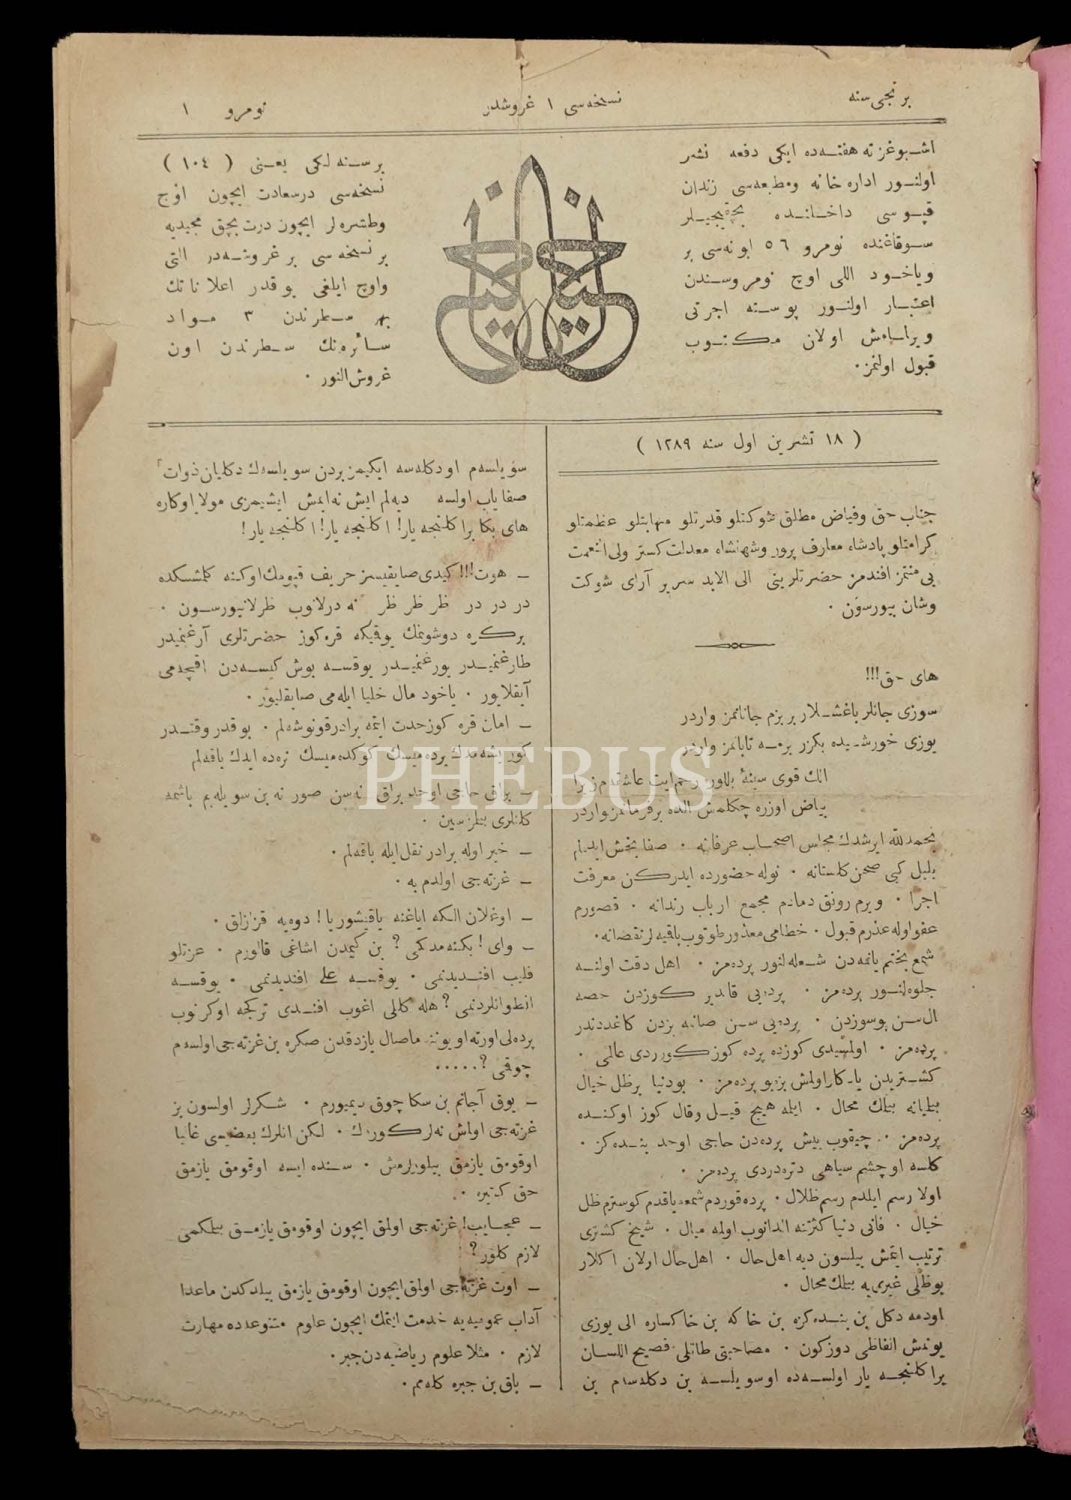 برنجی سنه
نسخه‌سی ١ غروشدر
نومرو ١
اشبو غزته هفته‌ده ایکی دفعه نشر
اولنور اداره خانه ومطبعه‌سی زندان
قپوسی داخلنده
سوقاغنده نومرو ٥٦ ابونه‌سی بر
ویاخود اللی اوچ نومروسندن
اعتبار اولنور پوسته اجرتی
ویرلمامش اولان مکتوب
قبول اولنمز.
خیال
برسنه لکی یعنی ( ١٠٤ )
نسخه‌سی درسعادت ایچون اوچ
وطشره‌لر ایچون درت بچق مجیدیه
بر نسخه‌سی بر غروشه‌در التی
واوچ ایلغی یوقدر اعلاناتك
بهر سطرندن ٣ مواد
سائره‌نك سطرندن اون
غروش النور .
( ١٨ تشرین اول سنه ١٢٨٩ )
جناب حق وفیاض مطلق شوکتلو قدرتلو مهابتلو عظمتلو
کرامتلو پادشاه معارف پرور وشهنشاه معدلت کستر ولی النعمت
بی منتمز افندمز حضرتلرینی الی الابد سریر آرای شوکت
وشان بیورسون .
های حق!!!
سوزی جانلر باغشلار بر بزم جانانمز واردر
یوزی خورشیده بکزر برمه تابانمز واردر
انك قوی سینهٔ بللورن
بیاض اوزره چکلمش الده بر فرمانمز واردر
بحمدلله ایرشدك مجلس اصحاب عرفانه . صفا بخش ایدلم
بلبل کبی صحن کلستانه . نوله حضورده ایدرکن معرفت
اجرا . ویرم رونق دمادم مجمع ارباب رندانه . قصورم
عفو اوله عذرم قبول . خطامی معذور طوتوب باقیه‌لر نقصانه.
شمع بختم یانمه‌دن شعله‌لنور پرده‌مز . اهل دقت اولنسه
جلوه‌لنور پرده‌مز . پرده‌یی قالدیر کوزدن حصه
ال سن بوسوزدن . پرده‌یی سن صانمه بزدن کاغددندر
پرده‌مز . اولمیدی کوزده پرده کوز کوردی عالمی .
کشتریدن یادکار اولمش بزبو پرده‌مز . بودنیا بر ظل خیال
بیلیانه بیلك محال . ایله هیچ قیل وقال کوز اوکنده
پرده‌مز . چیقوب پیش پرده‌دن حاجی اوحد بنده‌کز .
کلسه او چشم سیاهی دتره‌دردی پرده‌مز .
اولا رسم ایلدم رسم ظلال . پرده قوردم شمعه یاقدم کوسترم ظل
خیال . فانی دنیا کثرتنه الدانوب اولمه میال . شیخ کشتری
ترتیب ایتمش بیلسون دیه اهل حال . اهل حال اولان اکلار
بوظلی غیری‌یه بیلك محال .
اودمه دکل بن بنده‌کزه بن خاکه بن خاکساره الی یوزی
یونمش الفاظی دوزکون . مصاحبتی طاتلی فصیح اللسان
برا کلنجه یار اولسه‌ده او سویلسه بن دکله‌سام بن
سویلسم او دکله‌سه ایکیمز بردن سویلسه‌ك دکلیان ذوات
صفایاب اولسه دیه‌لم ایش نه‌ایمش ایشیمزی مولا اوکاره
های بکا برا کلنجه یار! اکلنجه یار! اکلنجه یار!
ـ هوت!!! کیدی صایقیسز حریف قپومك اوکنه کلمشکده
در در در ظر ظر ظر نه درلانوب ظرلانیورسون .
برکره دوشونمك یوقیکه قره‌کوز حضرتلری آرغنمیدر
طارغنمیدر یورغنمیدر یوقسه بوش کیسه‌دن اقچه‌می
آیقلایور . یاخود مال خلیا ایله‌می صایقلیور .
ـ امان قره کوز حدت ایتمه برادر قونوشه‌لم . بوقدر وقتدر
کورشه‌مدك یرده‌میسك کوکده‌میسك نره‌ده ایدك باقه‌لم
ـ براق حاجی اوحد براق نه‌سن صور نه بن سویلیه‌یم باشمه
کلنلری بیلرسین .
ـ خیر اوله برادر نقل ایله باقه‌لم .
ـ غزته‌جی اولدم به .
ـ اوغلان الکه ایاغنه یاقیشور یا! دوه‌یه قزازلق .
ـ وای! بکنه‌مدکمی؟ بن کیمدن اشاغی قالورم . عزتلو
فلیب افندیدنمی . یوقسه علی افندیدنمی . یوقسه
انطوانلردنمی؟ هله کلای اغوب افندی ترکجه اوکرنوب
پرده‌لی اورته اویونی ماصال یازدقدن صکره بن غزته‌جی اولسه‌م
چوقمی؟.....
ـ یوق آجانم بن سکا چوق دیمیورم . شکرلر اولسون بز
غزته‌جی اولمش نه‌لر کوردك . لکن انلرك بعضیسی غالبا
اوقومق یازمق بیلورلرمش . سنده ایسه اوقومق یازمق
حق کتیره .
ـ عجایب! غزته‌جی اولمق ایچون اوقومق یازمق بیلمکمی
لازم کلور؟
ـ اوت غزته‌جی اولمق ایچون اوقومق یازمق بیلدکدن ماعدا
آداب عمومیه‌یه خدمت ایتمك ایچون علوم متنوعده مهارت
لازم . مثلا علوم ریاضیه‌دن جبر.
ـ باق بن جبره کله‌مم .
PHEBUS